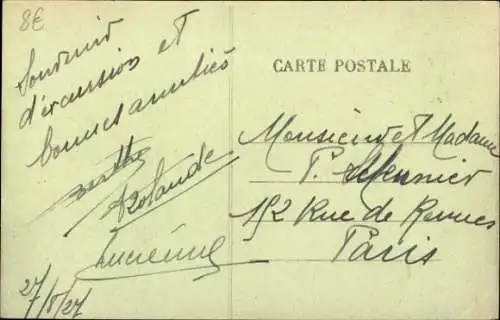 8€
Souvenir
d'excursion et
bonnes amitiés
Berthe
Rolande
Lucienne
27/8/27
CARTE POSTALE
Monsieur et Madame
P. Meunier
152 Rue de Rennes
Paris